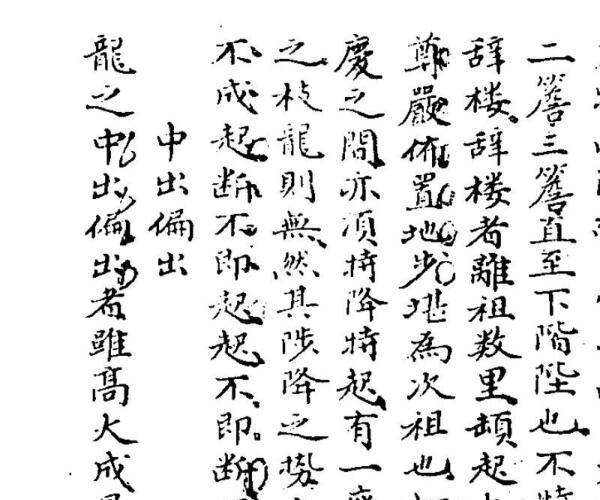 二簷三簷直至下階陛也不特
辞楼辞楼者離祖数里頓起
尊嚴佈置地步堪為次祖也
慶之間亦須特降特起有一
之枝龍則無然其陟降之勢
不成起断不即起起不即断
中出偏出
龍之中出偏出者雖髙大成